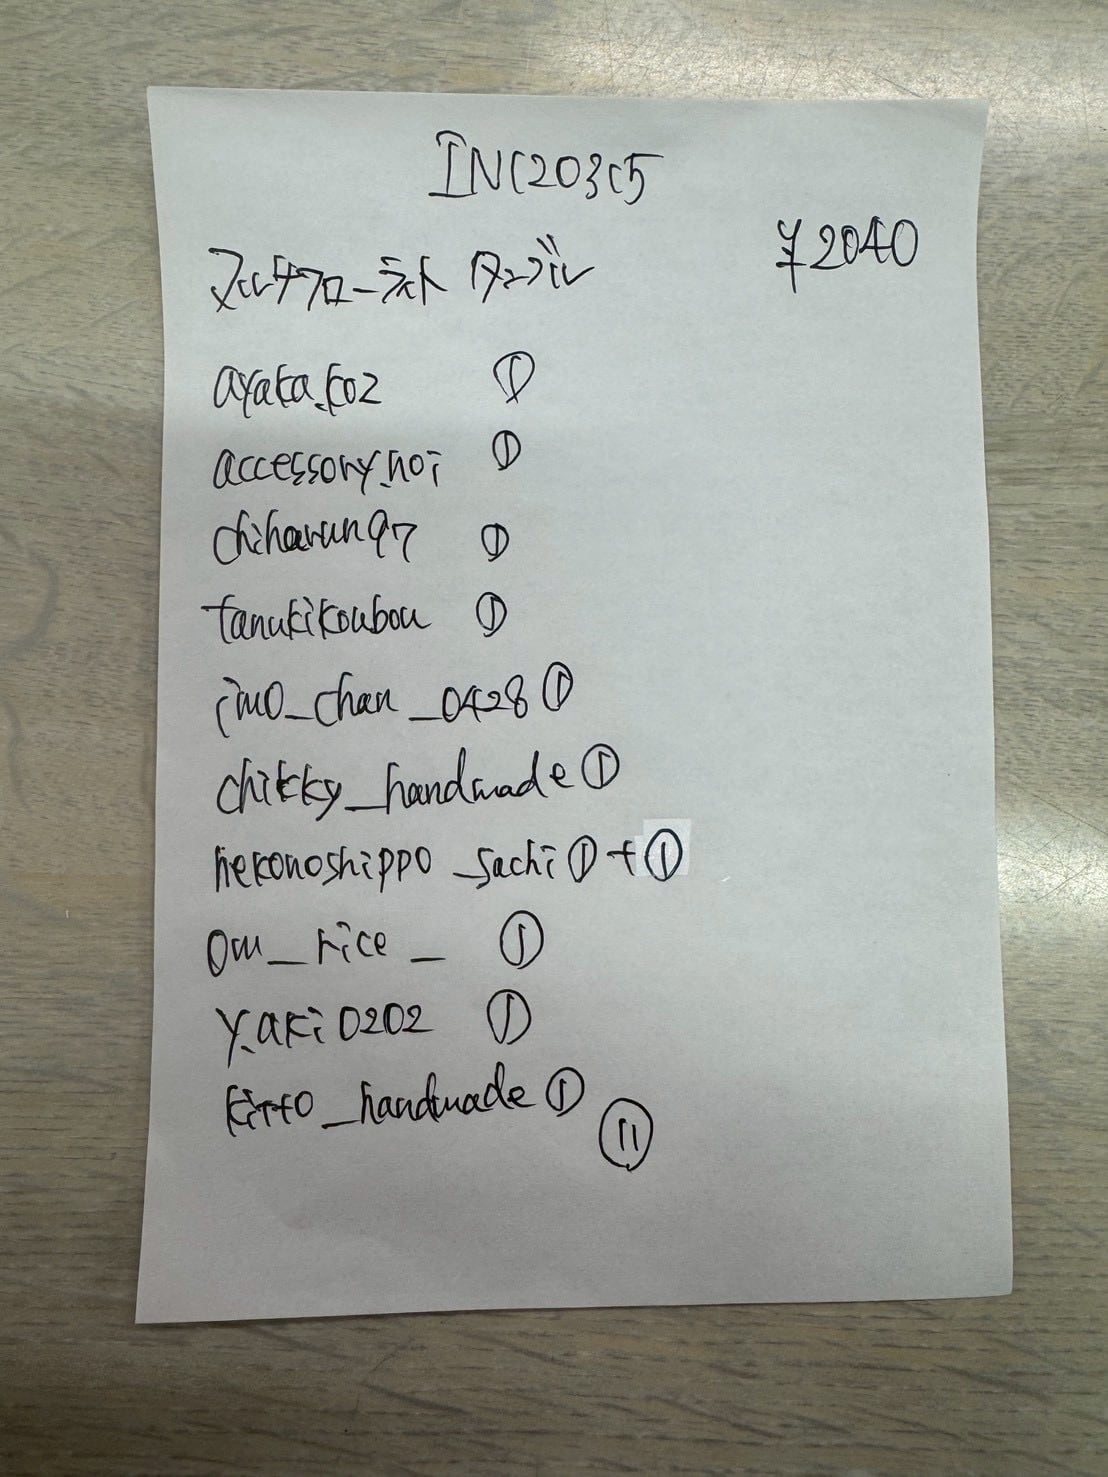 INC203C5
マルチフローライト タンブル ¥2040
ayaka.k02 ①
accessory.noi ①
chiharun97 ①
tanukikoubou ①
imo_chan_0428 ①
chikky_handmade ①
nekonoshippo_sachi ①+①
om_rice_ ①
y.aki0202 ①
kitto_handmade ①
⑪